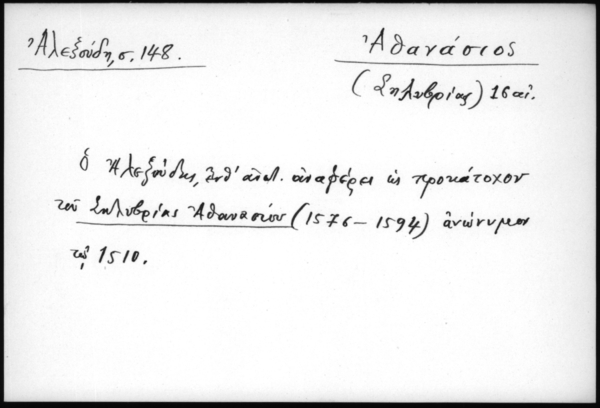 Ἀλεξούδη, σ. 148.
Ἀθανάσιος
(Σηλυβρίας) 16 αἰ.
Ὁ Ἀλεξούδης, ἀναφέρει ὡς προκάτοχον
τοῦ Σηλυβρίας Ἀθανασίου (1576 – 1594) ἀνώνυμον
τῷ 1510.